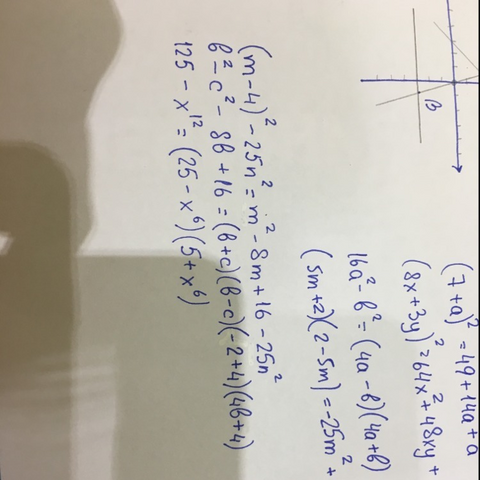 B
(7+a)² = 49+14a+a
(8x+3y)² = 64x²+48xy+
16a²-b² = (4a-b)(4a+b)
(5m+2)(2-5m) = -25m²+
(m-4)²-25n² = m²-8m+16-25n²
b²-c²-8b+16 = (b+c)(b-c)(-2+4)(4b+4)
125-x¹² = (25-x⁶)(5+x⁶)